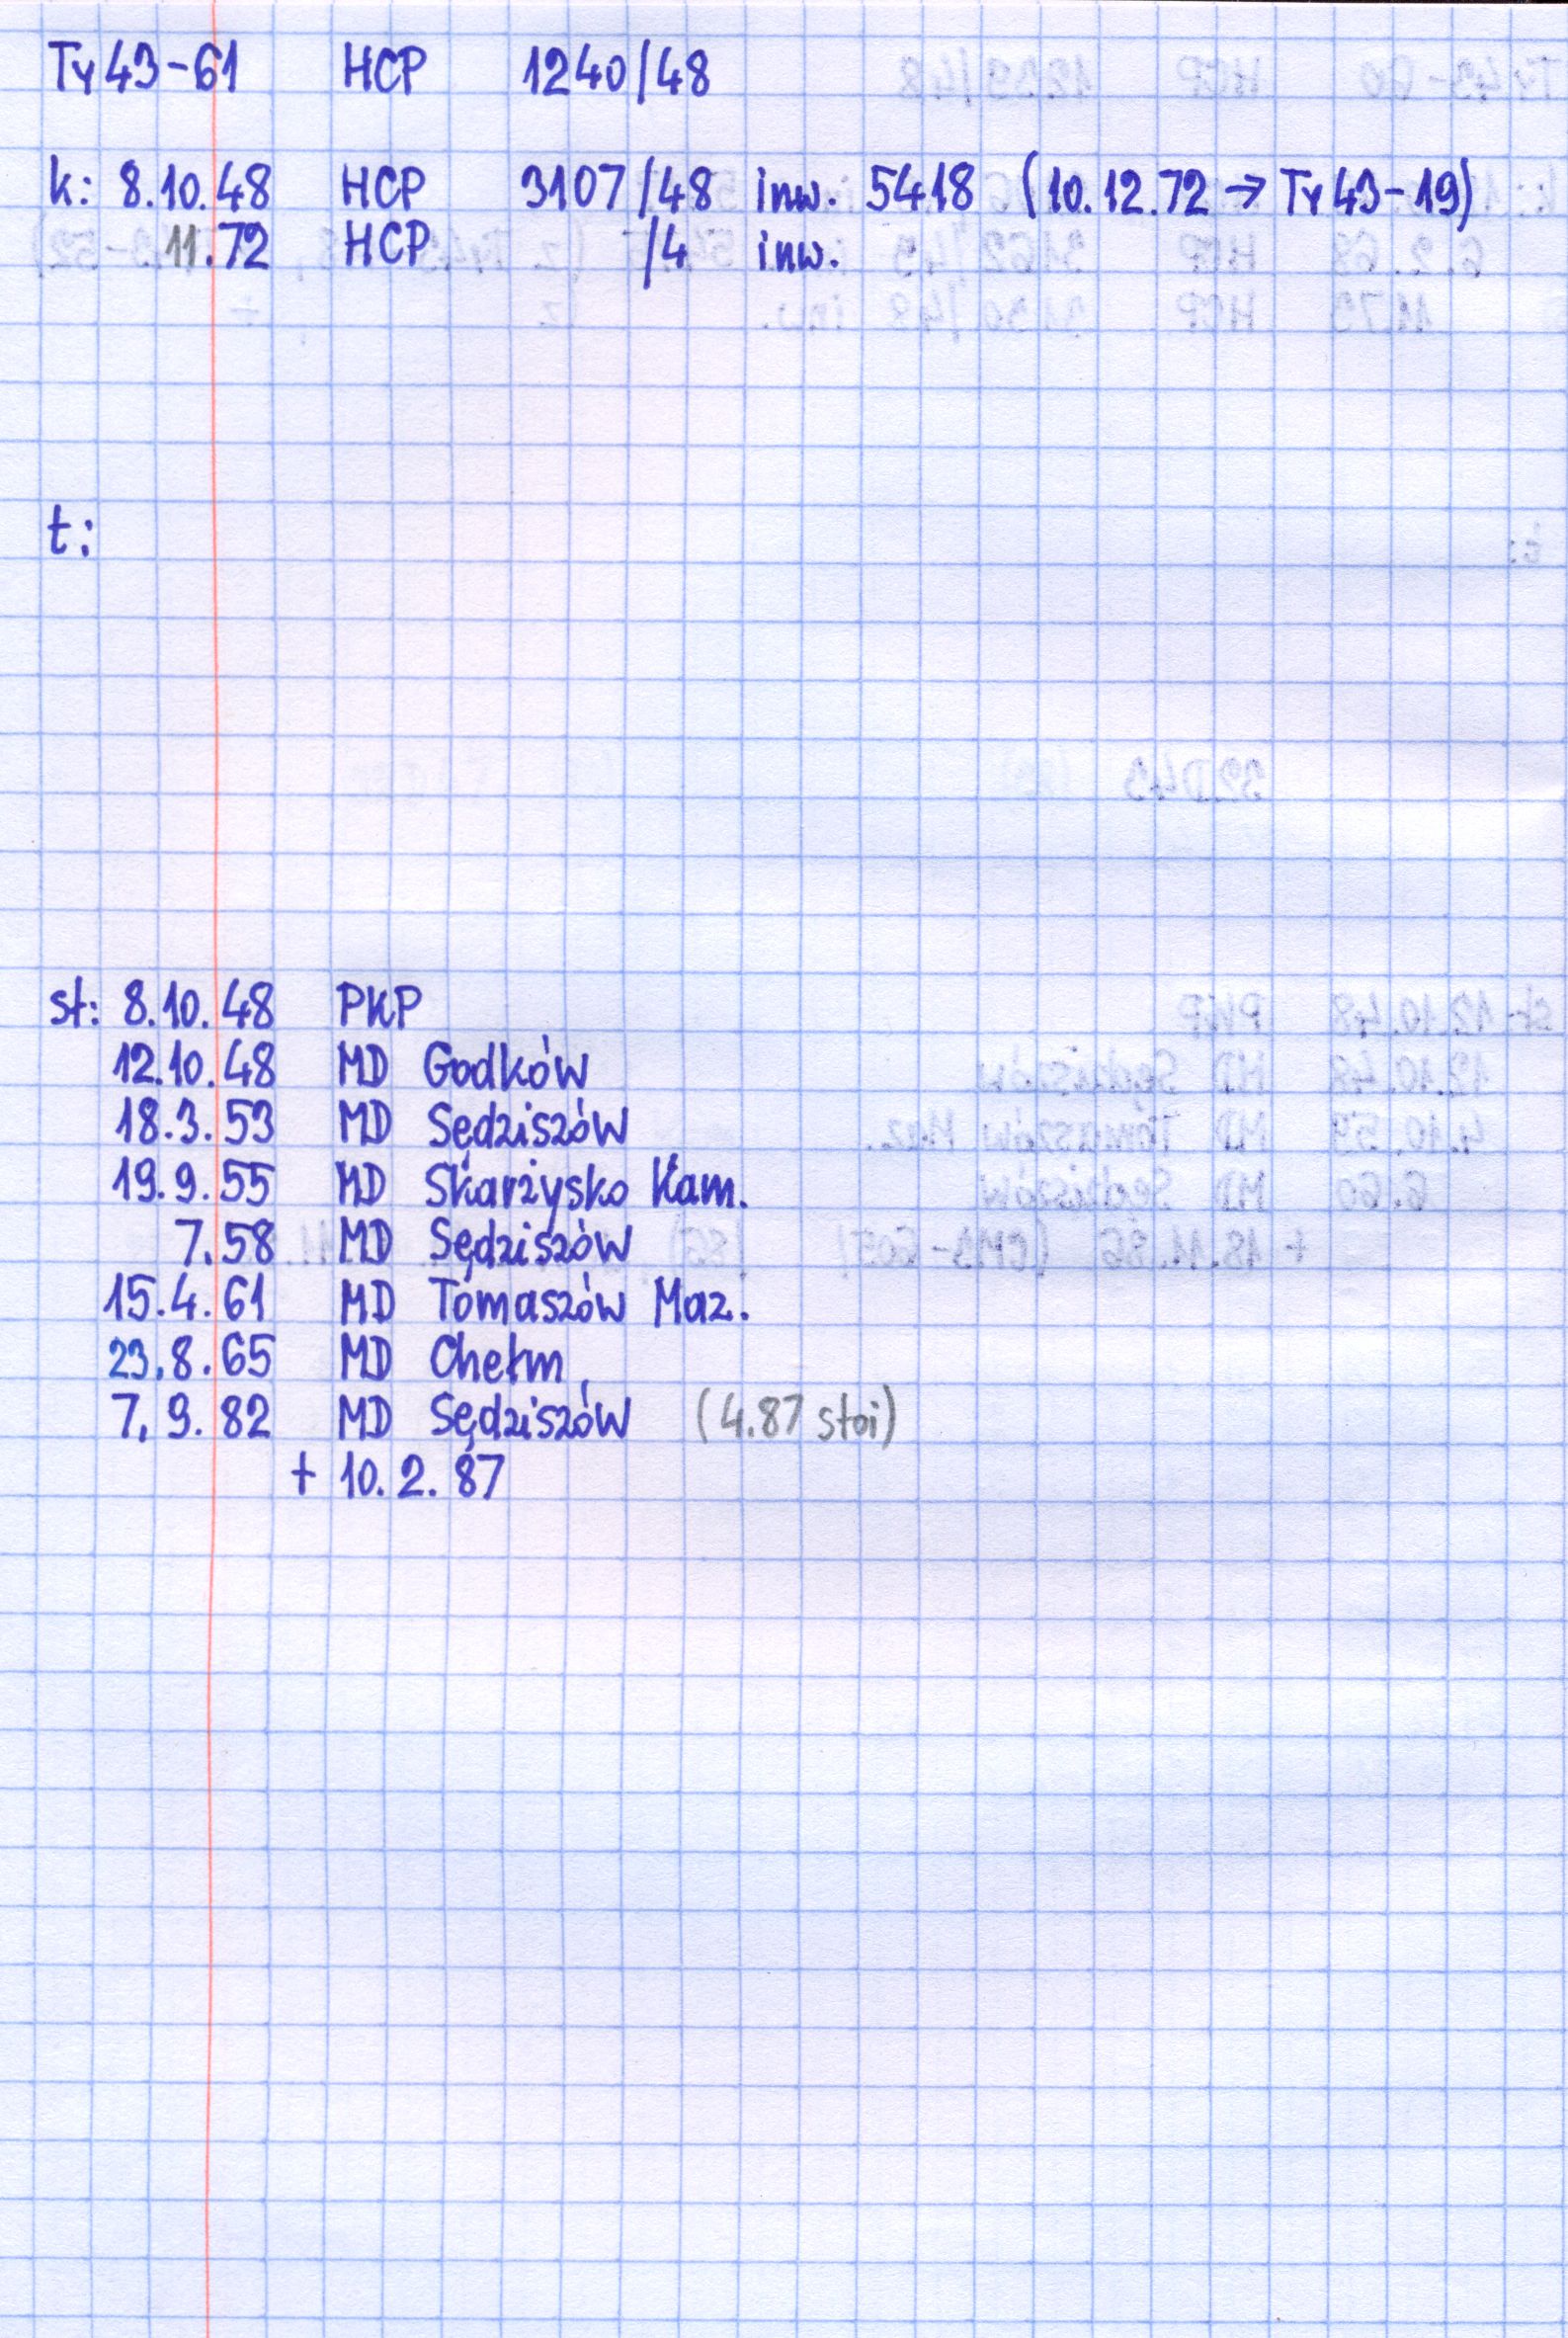 Ty43-61 HCP 1240/48
k: 8.10.48 HCP 3107/48 inw. 5418 (10.12.72 → Ty43-19)
11.72 HCP /4 inw.
t:
st: 8.10.48 PKP
12.10.48 MD Godków
18.3.53 MD Sędziszów
19.9.55 MD Skarżysko Kam.
7.58 MD Sędziszów
15.4.61 MD Tomaszów Maz.
23.8.65 MD Chełm
7.9.82 MD Sędziszów (4.87 stoi)
+ 10.2.87